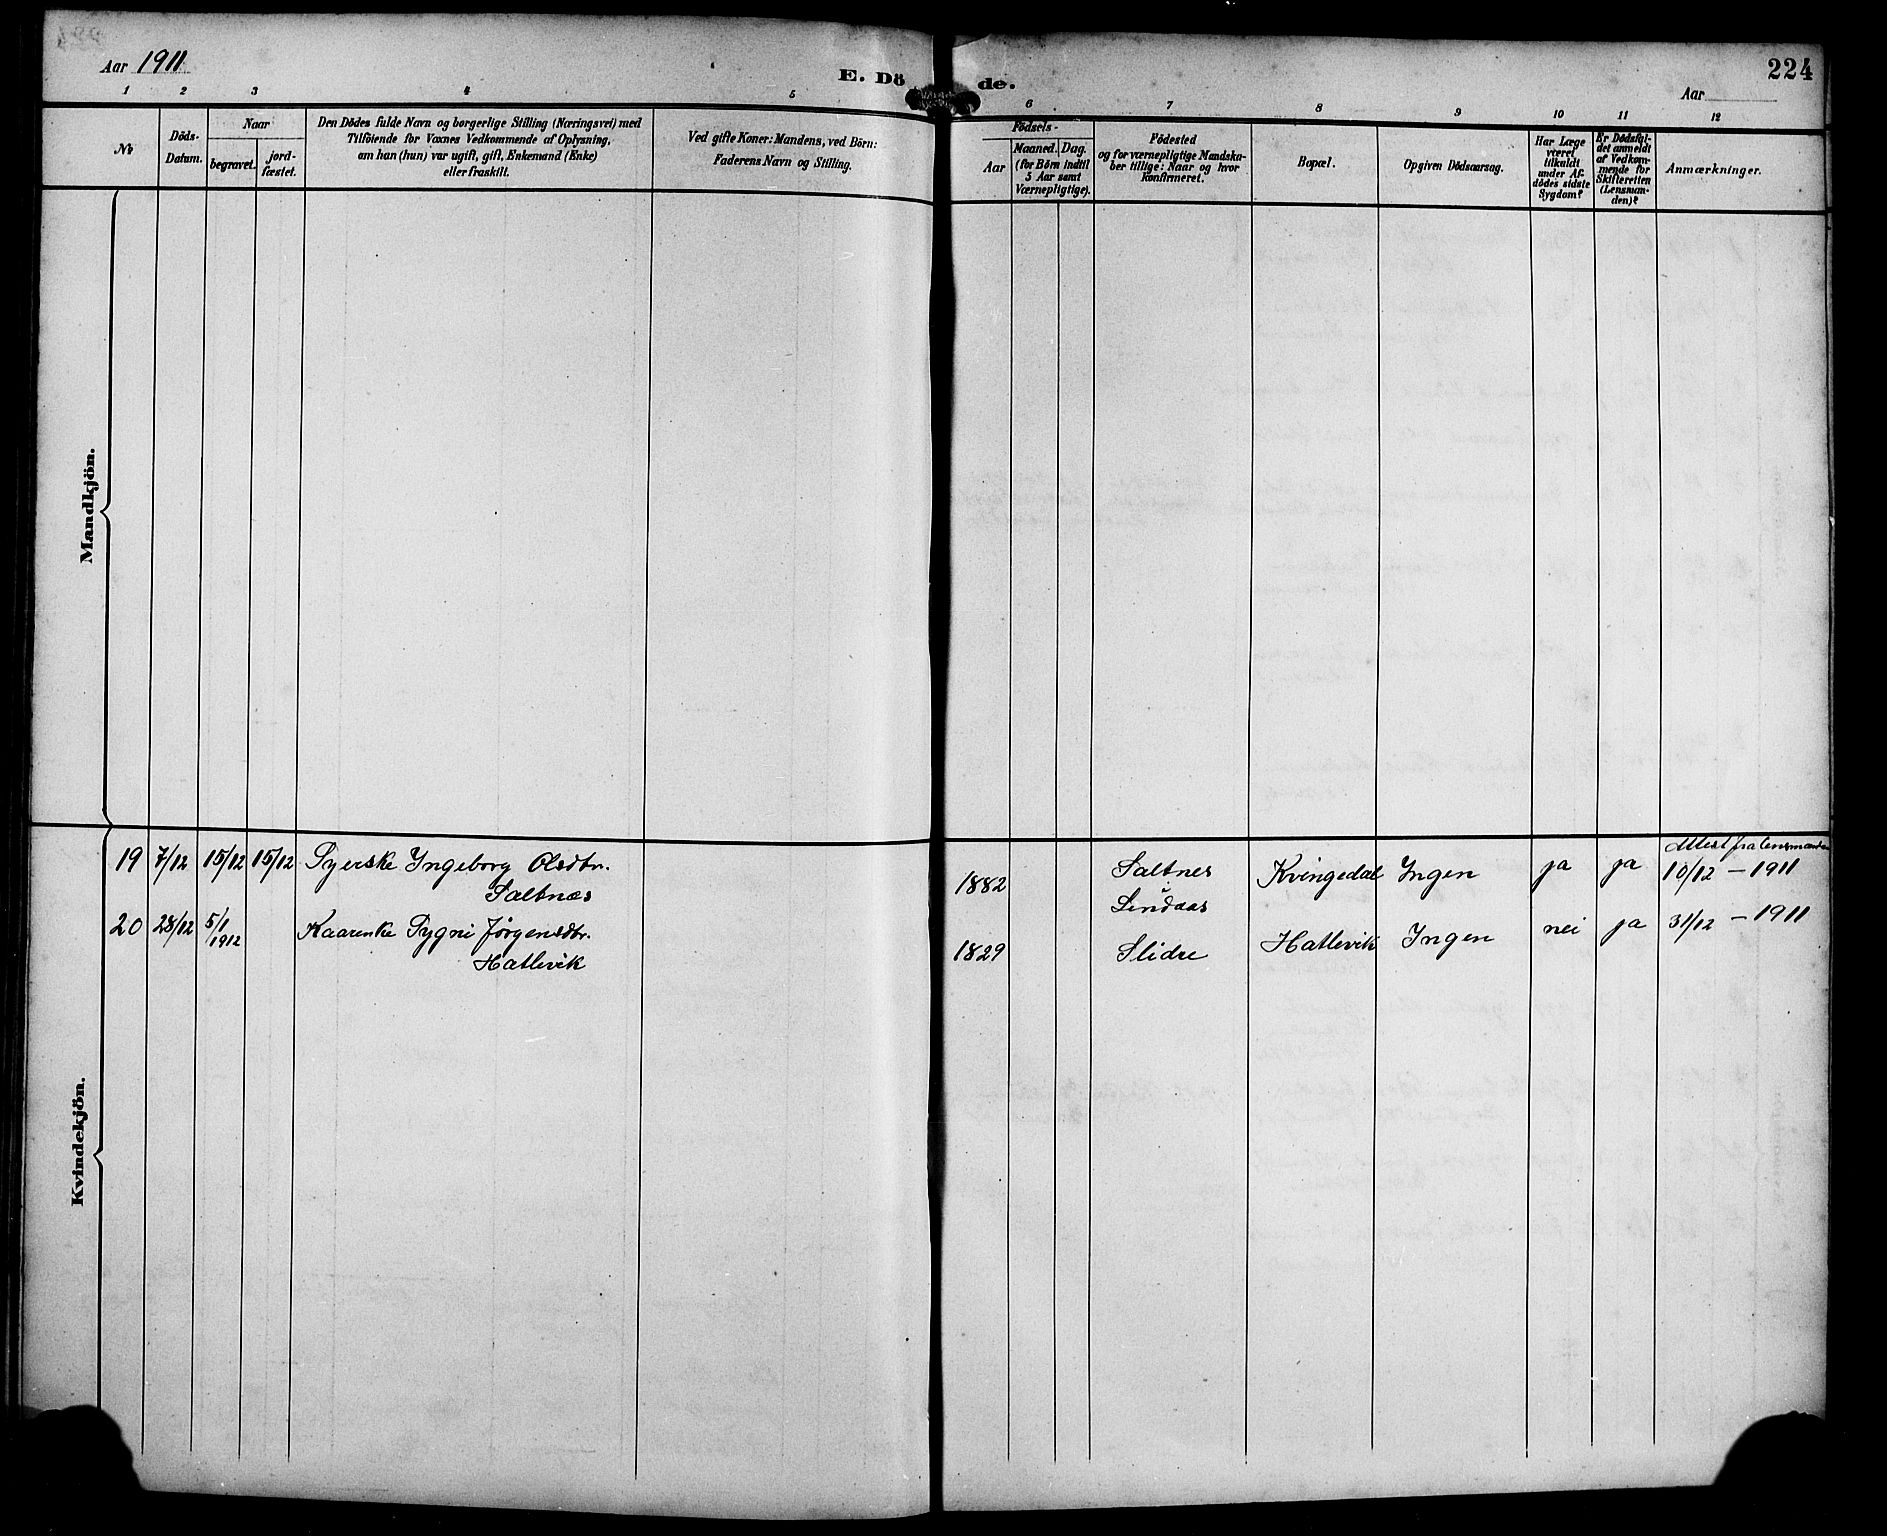 Aar 1911
E. Dö
de.
224
Aar
1 2 3 4 5 6 7 8 9 10 11 12
№
Döds-
Datum.
Naar
begravet.
jord-
fæstet.
Den Dödes fulde Navn og borgerlige Stilling (Næringsvei) med
Tilföiende for Voxnes Vedkommende af Oplysning,
om han (hun) var ugift, gift, Enkemand (Enke)
eller fraskilt.
Ved gifte Koner: Mandens, ved Börn:
Faderens Navn og Stilling.
Födsels-
Aar
Maaned. Dag.
(for Börn indtil
5 Aar samt
Værnepligtige).
Födested
og for værnepligtige Mandska-
ber tillige: Naar og hvor
konfirmeret.
Bopæl.
Opgiven Dödsaarsag.
Har Læge
været
tilkaldt
under Af-
dödes sidste
Sygdom?
Er Dödsfal-
det anmeldt
af Vedkom-
mende for
Skifteretten
(Lensman-
den)?
Anmærkninger.
Mandkjön.
Kvindekjön.
Attest fra lensmanden
19 7/12 15/12 15/12 Syerske Ingeborg Olsdtr. 1882 Saltnes Kvingedal Ingen ja ja 10/12 - 1911
Saltnæs Lindaas
20 28/12 5/1 Kaarenke Sygni Jørgensdtr. 1829 Slidre Hatlevik Ingen nei ja 31/12 - 1911
/1912 Hatlevik